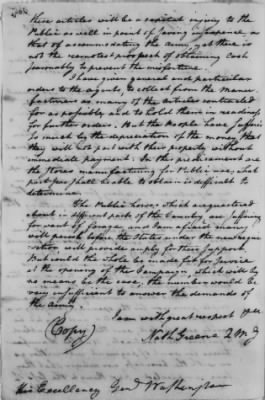 these articles will be a capital injury to the
Public as well in point of saving in expence, as
that of accommodating the army, yet there is
not the remotest prospect of obtaining Cash
seasonably to prevent the misfortune.
I have given general and particular
orders to the agents, to collect from the Manu-
facturers as many of the articles contracted
for as possible, and to hold them in readiness
for further orders. But the People have suffered
so much by the depreciation of the money that
they will not part with their property without
immediate payment. In this predicament are
the Stores manufacturing for Public use, what
part we shall be able to obtain is difficult to
determine.
The Public horses, which are quartered
about in different parts of the Country are suffering
for want of forage, and I am afraid many
will perish before the States under the new requi-
sition will provide supply for their support.
But could the whole be made fit for Service
at the opening of the Campaign, which will by
no means be the case, the number would be
very insufficient to answer the demands of
the army.
I am with great respect
(Copy)
Nath Greene Q M G
His Excellency Genl Washington